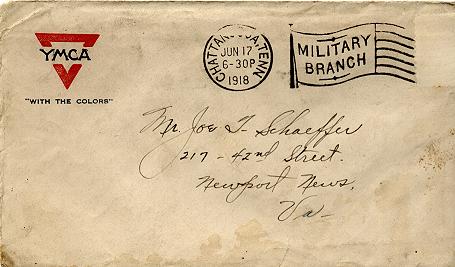 YMCA
"WITH THE COLORS"
CHATTANOOGA, TENN
JUN 17
6-30P
1918
MILITARY
BRANCH
Mr. Joe T. Schaeffer
217-42nd Street.
Newport News,
Va-